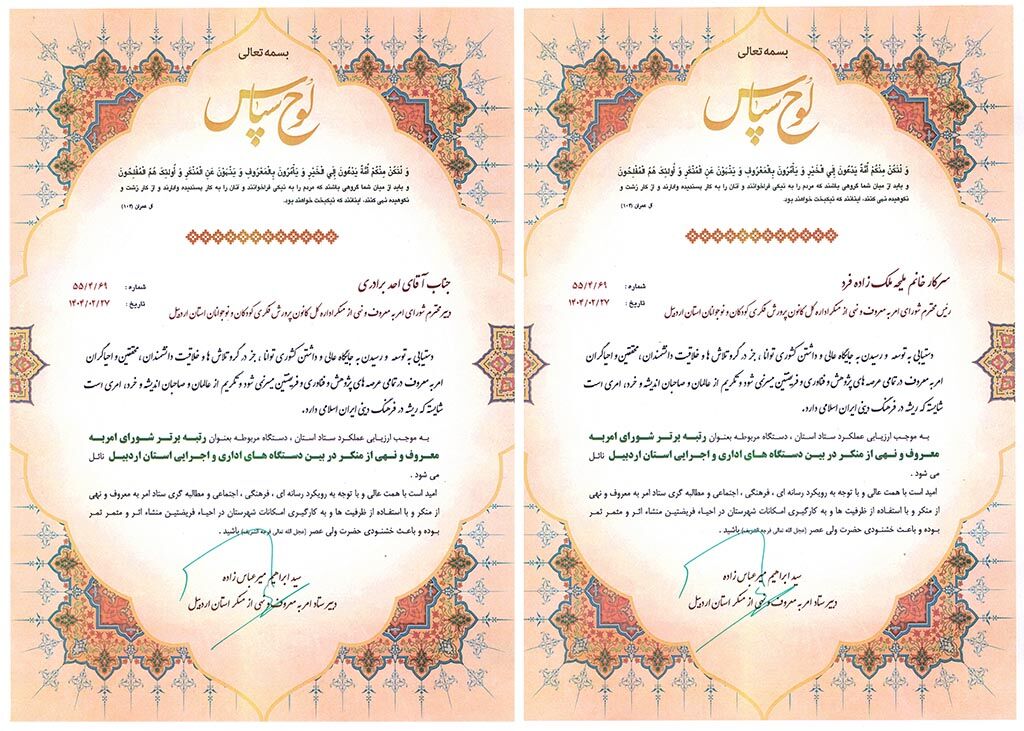 بسمه تعالی
لوح سپاس
وَ لْتَكُنْ مِنْكُمْ أُمَّةٌ يَدْعُونَ إِلَي الْخَيْرِ وَ يَأْمُرُونَ بِالْمَعْرُوفِ وَ يَنْهَوْنَ عَنِ الْمُنْكَرِ وَ أُولئِكَ هُمُ الْمُفْلِحُونَ
و باید از میان شما گروهی باشند که مردم را به نیکی فراخوانند و آنان را به کار پسندیده وادارند و از کار زشت و
نکوهیده نهی کنند، اینانند که نیکبخت خواهند بود. آل عمران (۱۰۴)
سرکار خانم ملیحه ملک زاده فرد شماره : ۵۵/۴/۶۹
تاریخ : ۱۴۰۴/۰۲/۲۷
رئیس محترم شورای امر به معروف و نهی از منکر اداره کل کانون پرورش فکری کودکان و نوجوانان استان اردبیل
دستیابی به توسعه و رسیدن به جایگاه عالی و داشتن کشوری توانا ، جز در گرو تلاش ها و خلاقیت دانشمندان، محققین و احیاگران
امر به معروف در تمامی عرصه های پژوهش و فناوری و فریضتین میسر نمی شود و تکریم از عالمان و صاحبان اندیشه و خرد، امری است
شایسته که ریشه در فرهنگ دینی ایران اسلامی دارد.
به موجب ارزیابی عملکرد ستاد استان ، دستگاه مربوطه بعنوان رتبه برتر شورای امربه
معروف و نهی از منکر در بین دستگاه های اداری و اجرایی استان اردبیل نائل
می شود .
امید است با همت عالی و با توجه به رویکرد رسانه ای ، فرهنگی ، اجتماعی و مطالبه گری ستاد امر به معروف و نهی
از منکر و با استفاده از ظرفیت ها و به کارگیری امکانات شهرستان در احیاء فریضتین منشاء اثر و مثمر ثمر
بوده و باعث خشنودی حضرت ولی عصر (عجل الله تعالی فرجه الشریف) باشید .
سید ابراهیم میرعباس زاده
دبیر ستاد امر به معروف و نهی از منکر استان اردبیل
بسمه تعالی
لوح سپاس
وَ لْتَكُنْ مِنْكُمْ أُمَّةٌ يَدْعُونَ إِلَي الْخَيْرِ وَ يَأْمُرُونَ بِالْمَعْرُوفِ وَ يَنْهَوْنَ عَنِ الْمُنْكَرِ وَ أُولئِكَ هُمُ الْمُفْلِحُونَ
و باید از میان شما گروهی باشند که مردم را به نیکی فراخوانند و آنان را به کار پسندیده وادارند و از کار زشت و
نکوهیده نهی کنند، اینانند که نیکبخت خواهند بود. آل عمران (۱۰۴)
جناب آقای احد برادری شماره : ۵۵/۴/۶۹
تاریخ : ۱۴۰۴/۰۲/۲۷
دبیر محترم شورای امر به معروف و نهی از منکر اداره کل کانون پرورش فکری کودکان و نوجوانان استان اردبیل
دستیابی به توسعه و رسیدن به جایگاه عالی و داشتن کشوری توانا ، جز در گرو تلاش ها و خلاقیت دانشمندان، محققین و احیاگران
امر به معروف در تمامی عرصه های پژوهش و فناوری و فریضتین میسر نمی شود و تکریم از عالمان و صاحبان اندیشه و خرد، امری است
شایسته که ریشه در فرهنگ دینی ایران اسلامی دارد.
به موجب ارزیابی عملکرد ستاد استان ، دستگاه مربوطه بعنوان رتبه برتر شورای امربه
معروف و نهی از منکر در بین دستگاه های اداری و اجرایی استان اردبیل نائل
می شود .
امید است با همت عالی و با توجه به رویکرد رسانه ای ، فرهنگی ، اجتماعی و مطالبه گری ستاد امر به معروف و نهی
از منکر و با استفاده از ظرفیت ها و به کارگیری امکانات شهرستان در احیاء فریضتین منشاء اثر و مثمر ثمر
بوده و باعث خشنودی حضرت ولی عصر (عجل الله تعالی فرجه الشریف) باشید .
سید ابراهیم میرعباس زاده
دبیر ستاد امر به معروف و نهی از منکر استان اردبیل